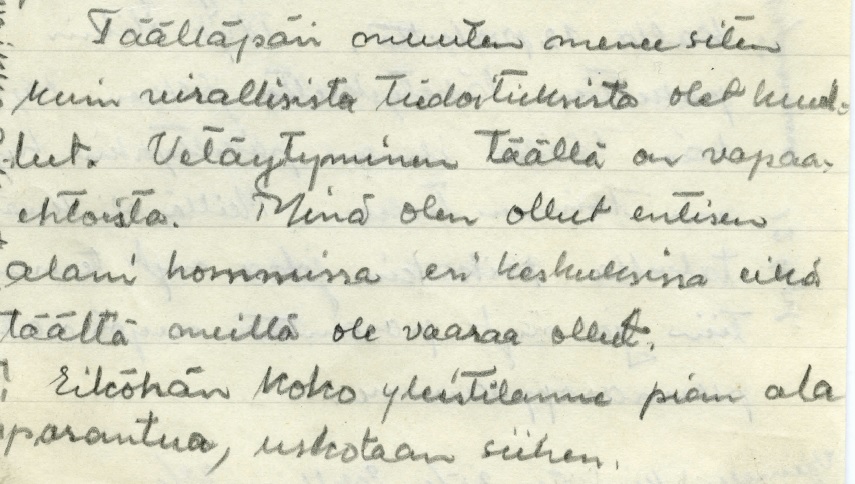 Täältäpäin muuten menee siten
kuin virallisista tiedoituksista olet kuul-
lut. Vetäytyminen täällä on vapaa-
ehtoista. Minä olen ollut entisen
alani hommissa eri keskuksissa eikä
täältä meillä ole vaaraa ollut.
Eiköhän koko yleistilanne pian ala
parantua, uskotaan siihen.